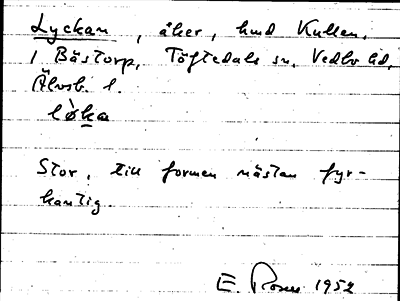 Lyckan, åker, hmd Kullen,
i Bästorp, Töftedals sn, Vedbo hd,
Älvsb. l.
lø̀ka
Stor, till formen nästan fyr-
kantig.
E. Rosen 1952